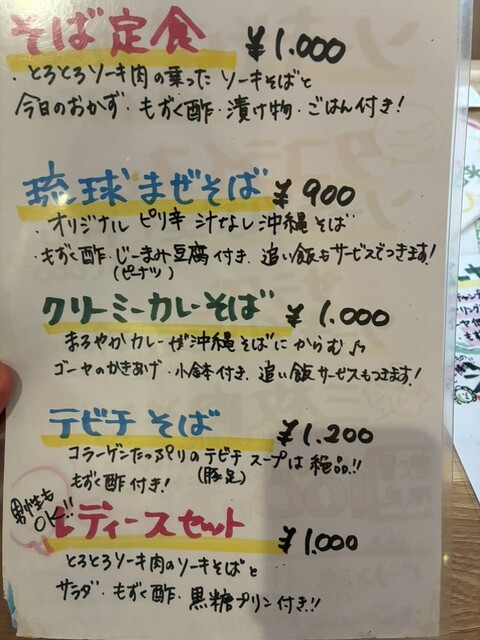 そば定食 ¥1.000
・とろとろソーキ肉の乗った ソーキそばと
今日のおかず・もずく酢・漬け物・ごはん付き!
琉球まぜそば ¥900
・オリジナル ピリ辛 汁なし沖縄そば
・もずく酢・じーまみ豆腐付き、追い飯もサービスでつきます!
(ピーナツ)
クリーミーカレーそば ¥1.000
まろやかカレーが沖縄そばにからむ♪
ゴーヤのかきあげ・小鉢付き、追い飯サービスもつきます!
テビチそば ¥1,200
コラーゲンたっぷりのテビチスープは絶品!!
(豚足)
もずく酢付き!
男性も
OK!!
レディースセット ¥1.000
とろとろソーキ肉のソーキそばと
サラダ・もずく酢・黒糖プリン付き!!